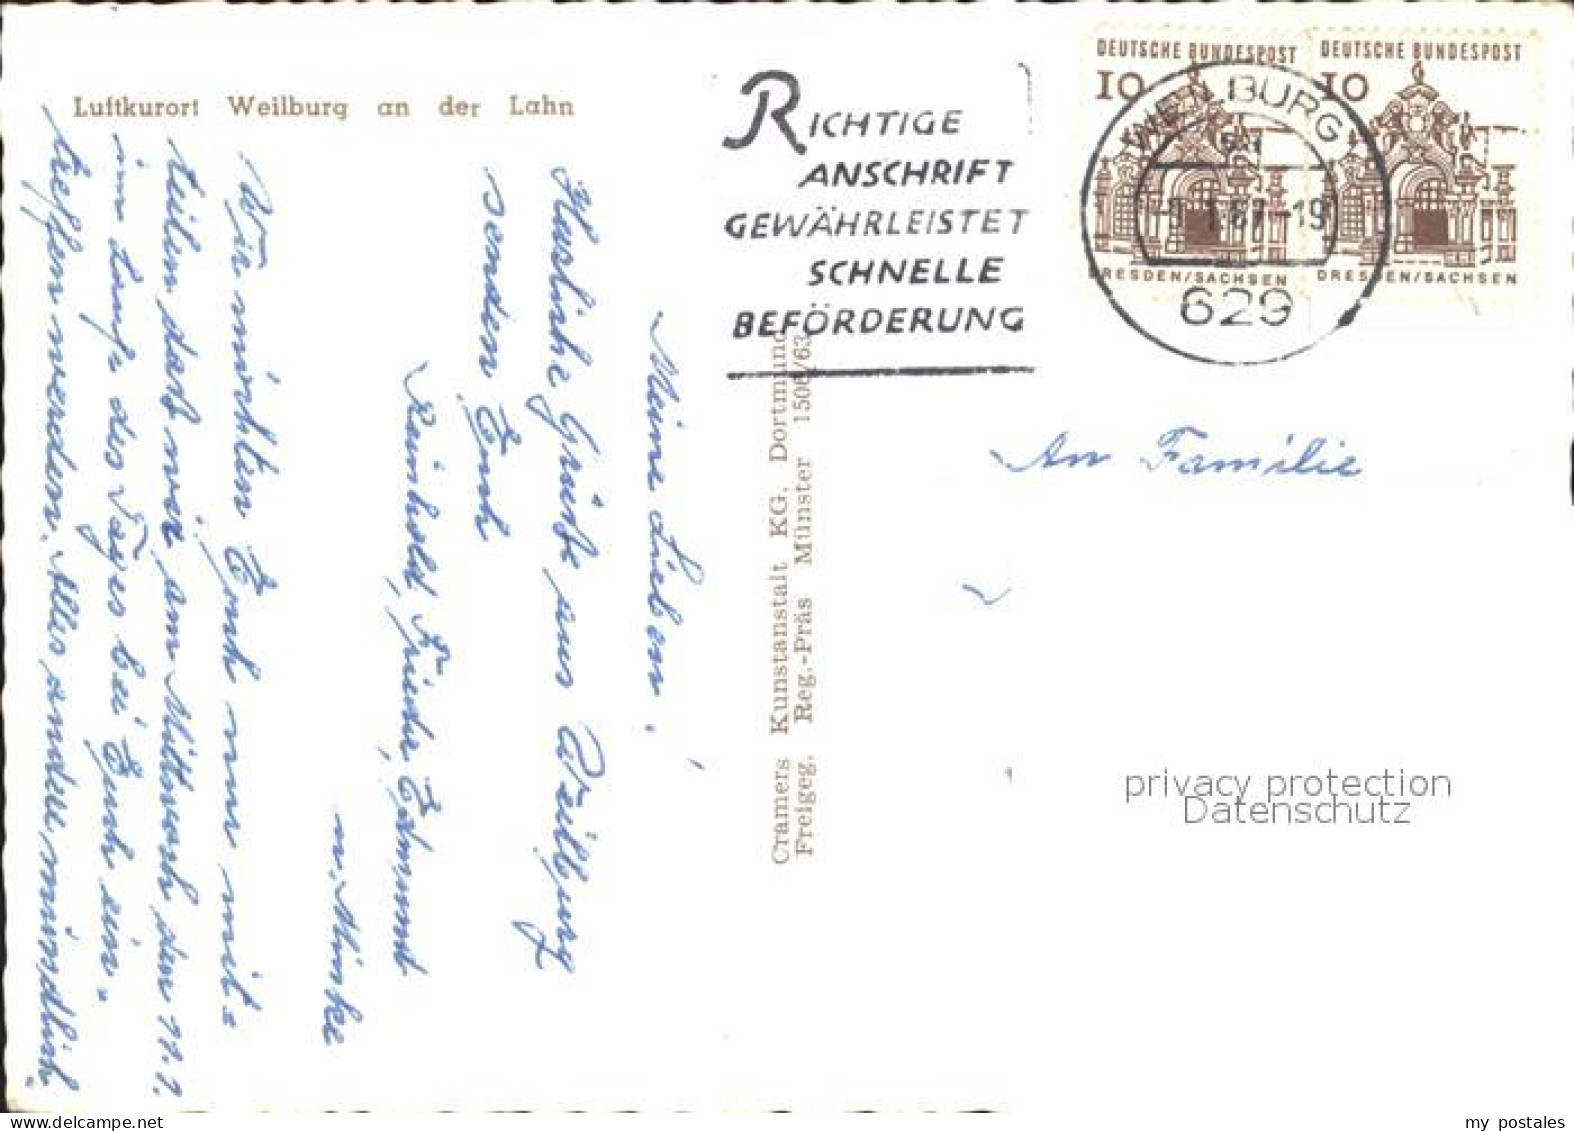 Luftkurort Weilburg an der Lahn
Meine Lieben!
Herzliche Grüße aus Weilburg
senden Euch
Reinhold, Frieda, Edmund
u. Minke
Wir möchten Euch nur mit=
teilen das wir am Mittwoch den 11.1.
im Laufe des Tages bei Euch ein=
treffen werden. Alles andere mündlich.
Cramers Kunstanstalt KG, Dortmund
Freigeg. Reg.-Präs Münster 1506/63
RICHTIGE
ANSCHRIFT
GEWÄHRLEISTET
SCHNELLE
BEFÖRDERUNG
DEUTSCHE BUNDESPOST
10
DRESDEN/SACHSEN
DEUTSCHE BUNDESPOST
10
DRESDEN/SACHSEN
WEILBURG
1.67-19
629
An Familie
privacy protection
Datenschutz
my postales